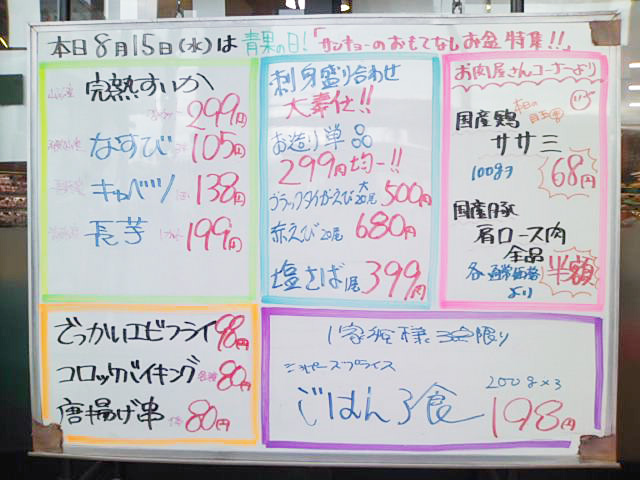 本日8月15日(水)は青果の日!「サンキョーのおもてなしお盆特集!!」
完熟すいか
299円
なすび 105円
キャベツ 138円
長芋 199円
刺身盛り合わせ
大奉仕!!
お造り単品
299円均一!!
ブラックタイガーえび大20尾 500円
赤えび20尾 680円
塩さば 399円
お肉屋さんコーナーより
本日の目玉
国産鶏
ササミ
100g 68円
国産豚
肩ロース肉
全品
各通常価格より
半額
でっかいエビフライ 98円
コロッケバイキング 各種 80円
唐揚げ串 80円
1家族様 限り
プライス
ごはん3食
200g×3
198円